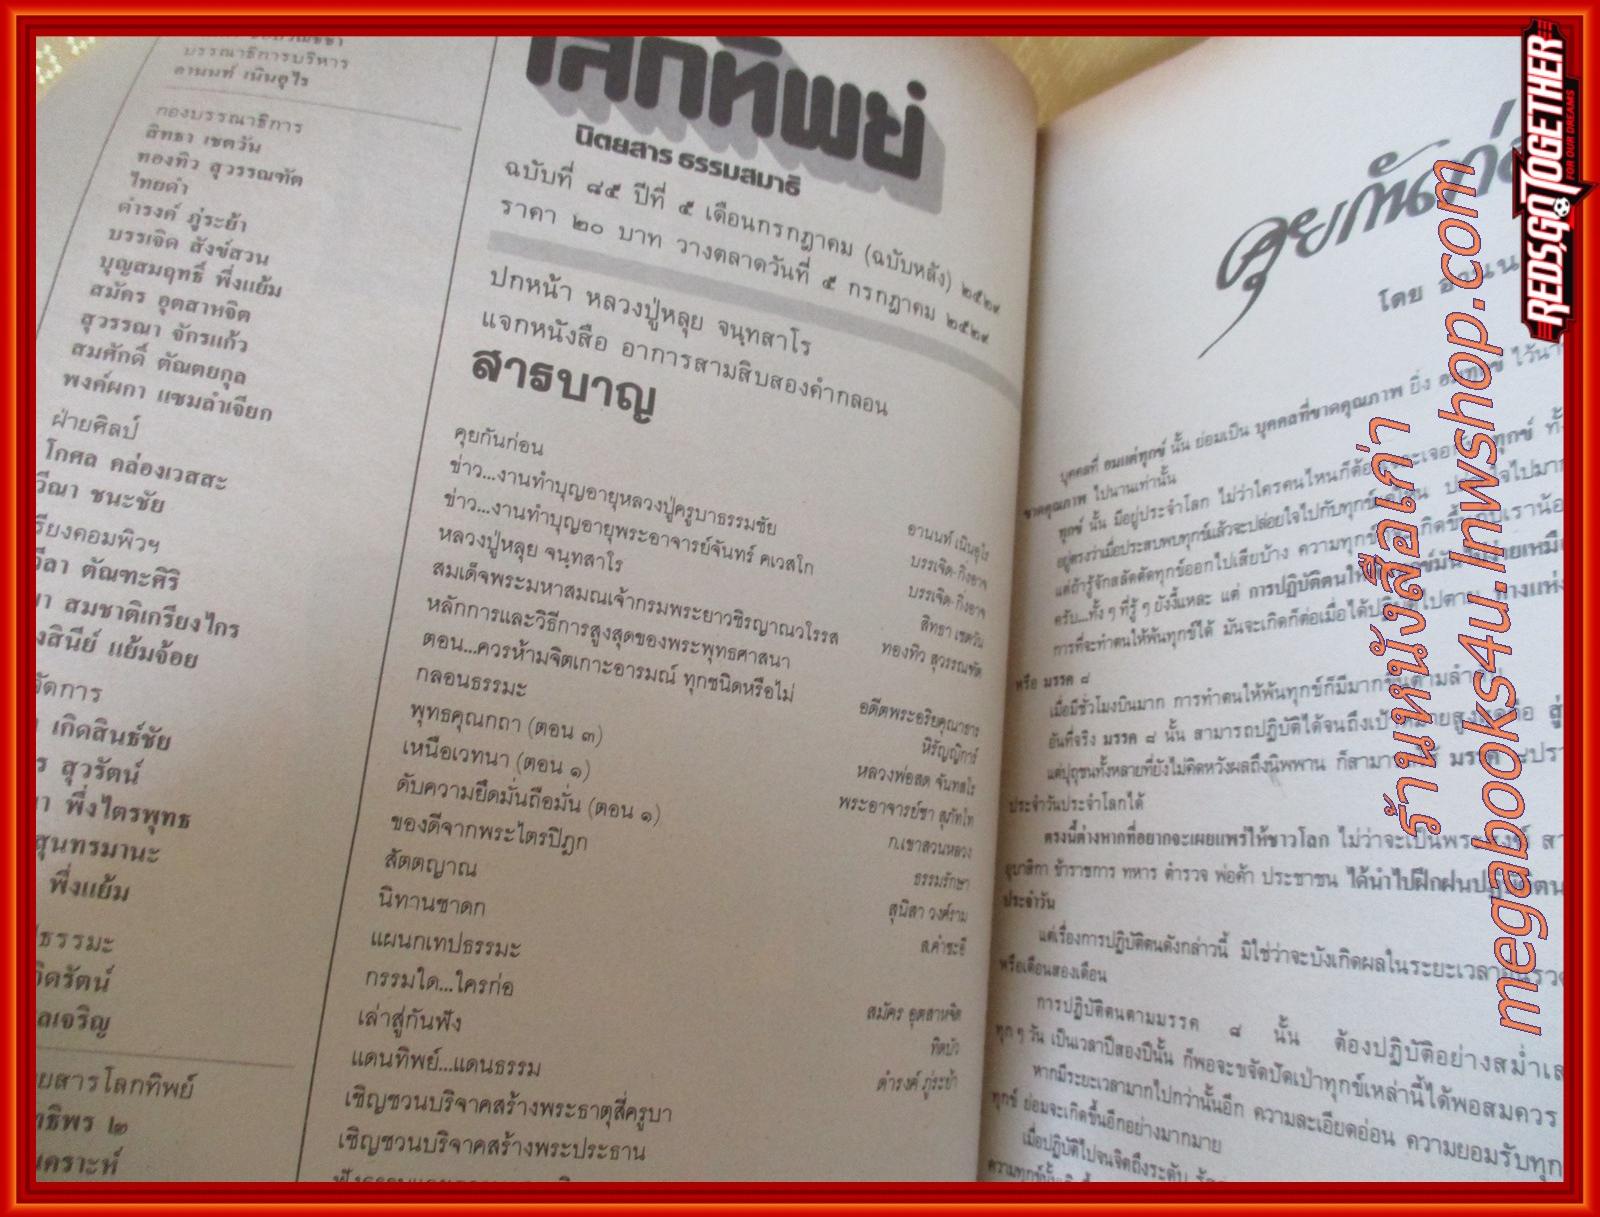 บรรณาธิการบริหาร
อานนท์ เนินอุไร
กองบรรณาธิการ
สิทธา เชตวัน
ทองทิว สุวรรณทัต
ไทยดำ
ดำรงค์ ภู่ระย้า
บรรเจิด สังข์สวน
บุญสมฤทธิ์ พึ่งแย้ม
สมัคร อุตสาหจิต
สุวรรณา จักรแก้ว
สมศักดิ์ ตัณตยกุล
พงค์ผกา แซมลำเจียก
ฝ่ายศิลป์
โกศล คล่องเวสสะ
วีณา ชนะชัย
เรียงคอมพิวฯ
วีลา ตัณฑะศิริ
สมชาติเกรียงไกร
แย้มจ้อย
จัดการ
เกิดสินธ์ชัย
สุวรัตน์
พึ่งไตรพุทธ
สุนทรมานะ
พึ่งแย้ม
ธรรมะ
จิตรัตน์
ลเจริญ
ยสารโลกทิพย์
ทธิพร ๒
นคราะห์
โลกทิพย์
นิตยสาร ธรรมสมาธิ
ฉบับที่ ๘๕ ปีที่ ๕ เดือนกรกฎาคม (ฉบับหลัง) ๒๕๒๙
ราคา ๒๐ บาท วางตลาดวันที่ ๕ กรกฎาคม ๒๕๒๙
ปกหน้า หลวงปู่หลุย จนฺทสาโร
แจกหนังสือ อาการสามสิบสองคำกลอน
สารบาญ
คุยกันก่อน อานนท์ เนินอุไร
ข่าว...งานทำบุญอายุหลวงปู่ครูบาธรรมชัย บรรเจิด-กิ่งอาจ
ข่าว...งานทำบุญอายุพระอาจารย์จันทร์ คเวสโก บรรเจิด-กิ่งอาจ
หลวงปู่หลุย จนฺทสาโร สิทธา เชตวัน
สมเด็จพระมหาสมณเจ้ากรมพระยาวชิรญาณวโรรส ทองทิว สุวรรณทัต
หลักการและวิธีการสูงสุดของพระพุทธศาสนา
ตอน...ควรห้ามจิตเกาะอารมณ์ ทุกชนิดหรือไม่ อดีตพระอริยคุณาธาร
กลอนธรรมะ หิรัญญิการ์
พุทธคุณกถา (ตอน ๓) หลวงพ่อสด จันทสโร
เหนือเวทนา (ตอน ๑) พระอาจารย์ชา สุภัทโท
ดับความยึดมั่นถือมั่น (ตอน ๑) ก.เขาสวนหลวง
ของดีจากพระไตรปิฎก ธรรมรักษา
สัตตญาณ สุนิสา วงศ์ราม
นิทานชาดก ส.คำชะอี
แผนกเทปธรรมะ
กรรมใด...ใครก่อ สมัคร อุตสาหจิต
เล่าสู่กันฟัง ทิดบัว
แดนทิพย์...แดนธรรม ดำรงค์ ภู่ระย้า
เชิญชวนบริจาคสร้างพระธาตุสี่ครูบา
เชิญชวนบริจาคสร้างพระประธาน
คุยกันก่อ
โดย อานน
บุคคลที่ อมแต่ทุกข์ นั้น ย่อมเป็น บุคคลที่ขาดคุณภาพ ยิ่ง อมทุกข์ ไว้นา
ขาดคุณภาพ ไปนานเท่านั้น
ทุกข์ นั้น มีอยู่ประจำโลก ไม่ว่าใครคนไหนก็ต้อง เจอ ทุกข์ ทั้
อยู่ตรงว่าเมื่อประสบพบทุกข์แล้วจะปล่อยใจไปกับทุกข์ ใจไปมาก
แต่ถ้ารู้จักสลัดตัดทุกข์ออกไปเสียบ้าง ความทุกข์ เกิดขึ้นกับเราน้อ
ครับ...ทั้ง ๆ ที่รู้ ๆ ยังงี้แหละ แต่ การปฏิบัติตนให้
การที่จะทำตนให้พ้นทุกข์ได้ มันจะเกิดก็ต่อเมื่อได้ปฏิบัติไปตาม ทางแห่ง
หรือ มรรค ๘
เมื่อมีชั่วโมงบินมาก การทำตนให้พ้นทุกข์ก็มีมากขึ้นตามลำดับ
อันที่จริง มรรค ๘ นั้น สามารถปฏิบัติได้จนถึงเป้าหมายสูงสุดคือ สู่
แต่ปุถุชนทั้งหลายที่ยังไม่คิดหวังผลถึงนิพพาน ก็สามารถใช้ มรรค
ประจำวันประจำโลกได้
ตรงนี้ต่างหากที่อยากจะเผยแพร่ให้ชาวโลก ไม่ว่าจะเป็นพระสงฆ์ สา
อุบาสิกา ข้าราชการ ทหาร ตำรวจ พ่อค้า ประชาชน ได้นำไปฝึกฝนปฏิบัติตน
ประจำวัน
แต่เรื่องการปฏิบัติตนดังกล่าวนี้ มิใช่ว่าจะบังเกิดผลในระยะเวลาอันรวด
หรือเดือนสองเดือน
การปฏิบัติตนตามมรรค ๘ นั้น ต้องปฏิบัติอย่างสม่ำเส
ทุก ๆ วัน เป็นเวลาปีสองปีนั้น ก็พอจะขจัดปัดเป่าทุกข์เหล่านี้ได้พอสมควร
หากมีระยะเวลามากไปกว่านั้นอีก ความละเอียดอ่อน ความยอมรับทุก
ทุกข์ ย่อมจะเกิดขึ้นอีกอย่างมากมาย
เมื่อปฏิบัติไปจนจิตถึงระดับ
ร้านหนังสือเก่า
megabooks4u.lnwshop.com
REDSGOTOGETHER
FOR OUR DREAMS